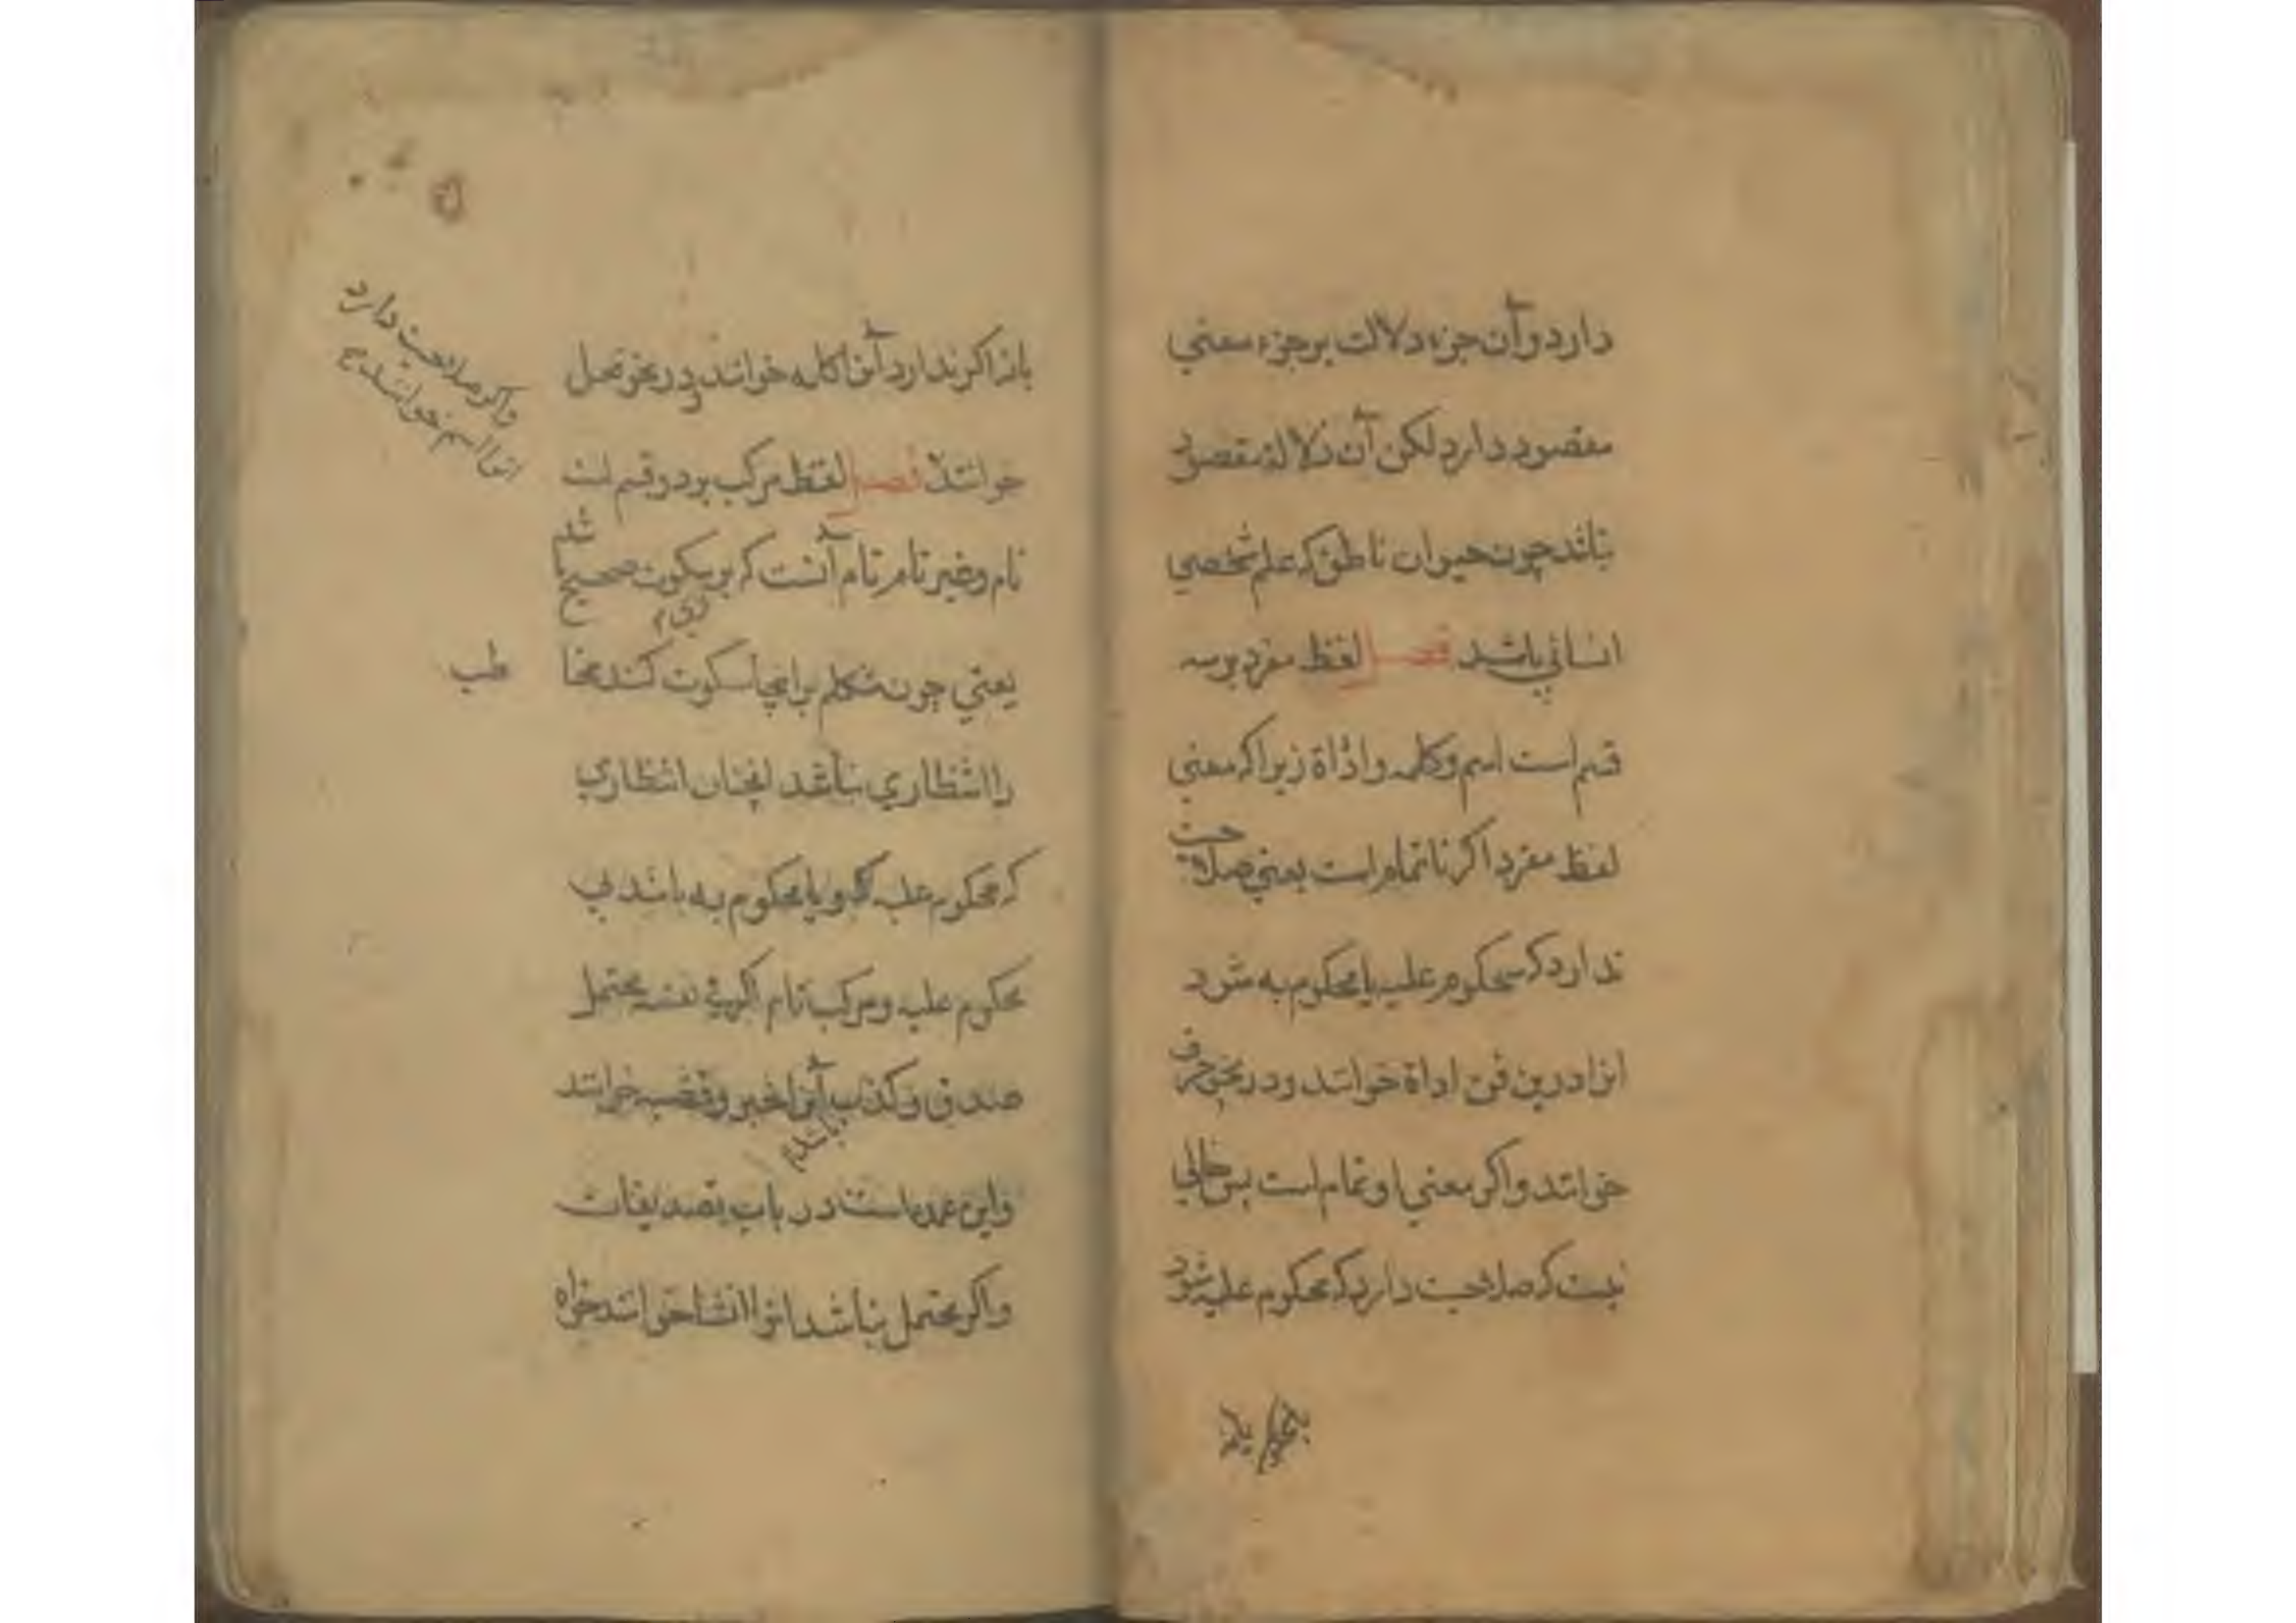 دارد و آن جزء دلالت بر جزء معنی
مقصود دارد لکن آن دلالة مقصود
نباشد چون حیوان ناطق که علم شخصی
انسانی باشد فصل لفظ مفرد بر سه
قسم است اسم و کلمه و اداة زیرا که معنی
لفظ مفرد اکر ناتمام است یعنی صلاحیت
ندارد که محکوم علیه یا محکوم به شود
انرا درین فن اداة خوانند و در نحو حرف
خوانند و اکر معنی او تمام است پس خالی
نیست که صلاحیت دارد که محکوم علیه شود
یا نه اکر ندارد آنرا کلمه خوانند و در نحو فعل
خوانند فصل لفظ مرکب بر دو قسم است
تام و غیر تام تام آنست که برو سکوت صحیح باشد
یعنی چون متکلم بر انجا سکوت کند مخاطب
را انتظاری نباشد انچنان انتظاری
که محکوم علیه کو و یا محکوم به باشد بی
محکوم علیه و مرکب تام اکر فی نفسه محتمل
صدق و کذب باشد آنرا خبر و قضیه خوانند
و این عمده است در باب تصدیقات
و اکر محتمل نباشد انرا انشا خوانند خواه
واکر صلاحیت دارد
انرا اسم خوانند